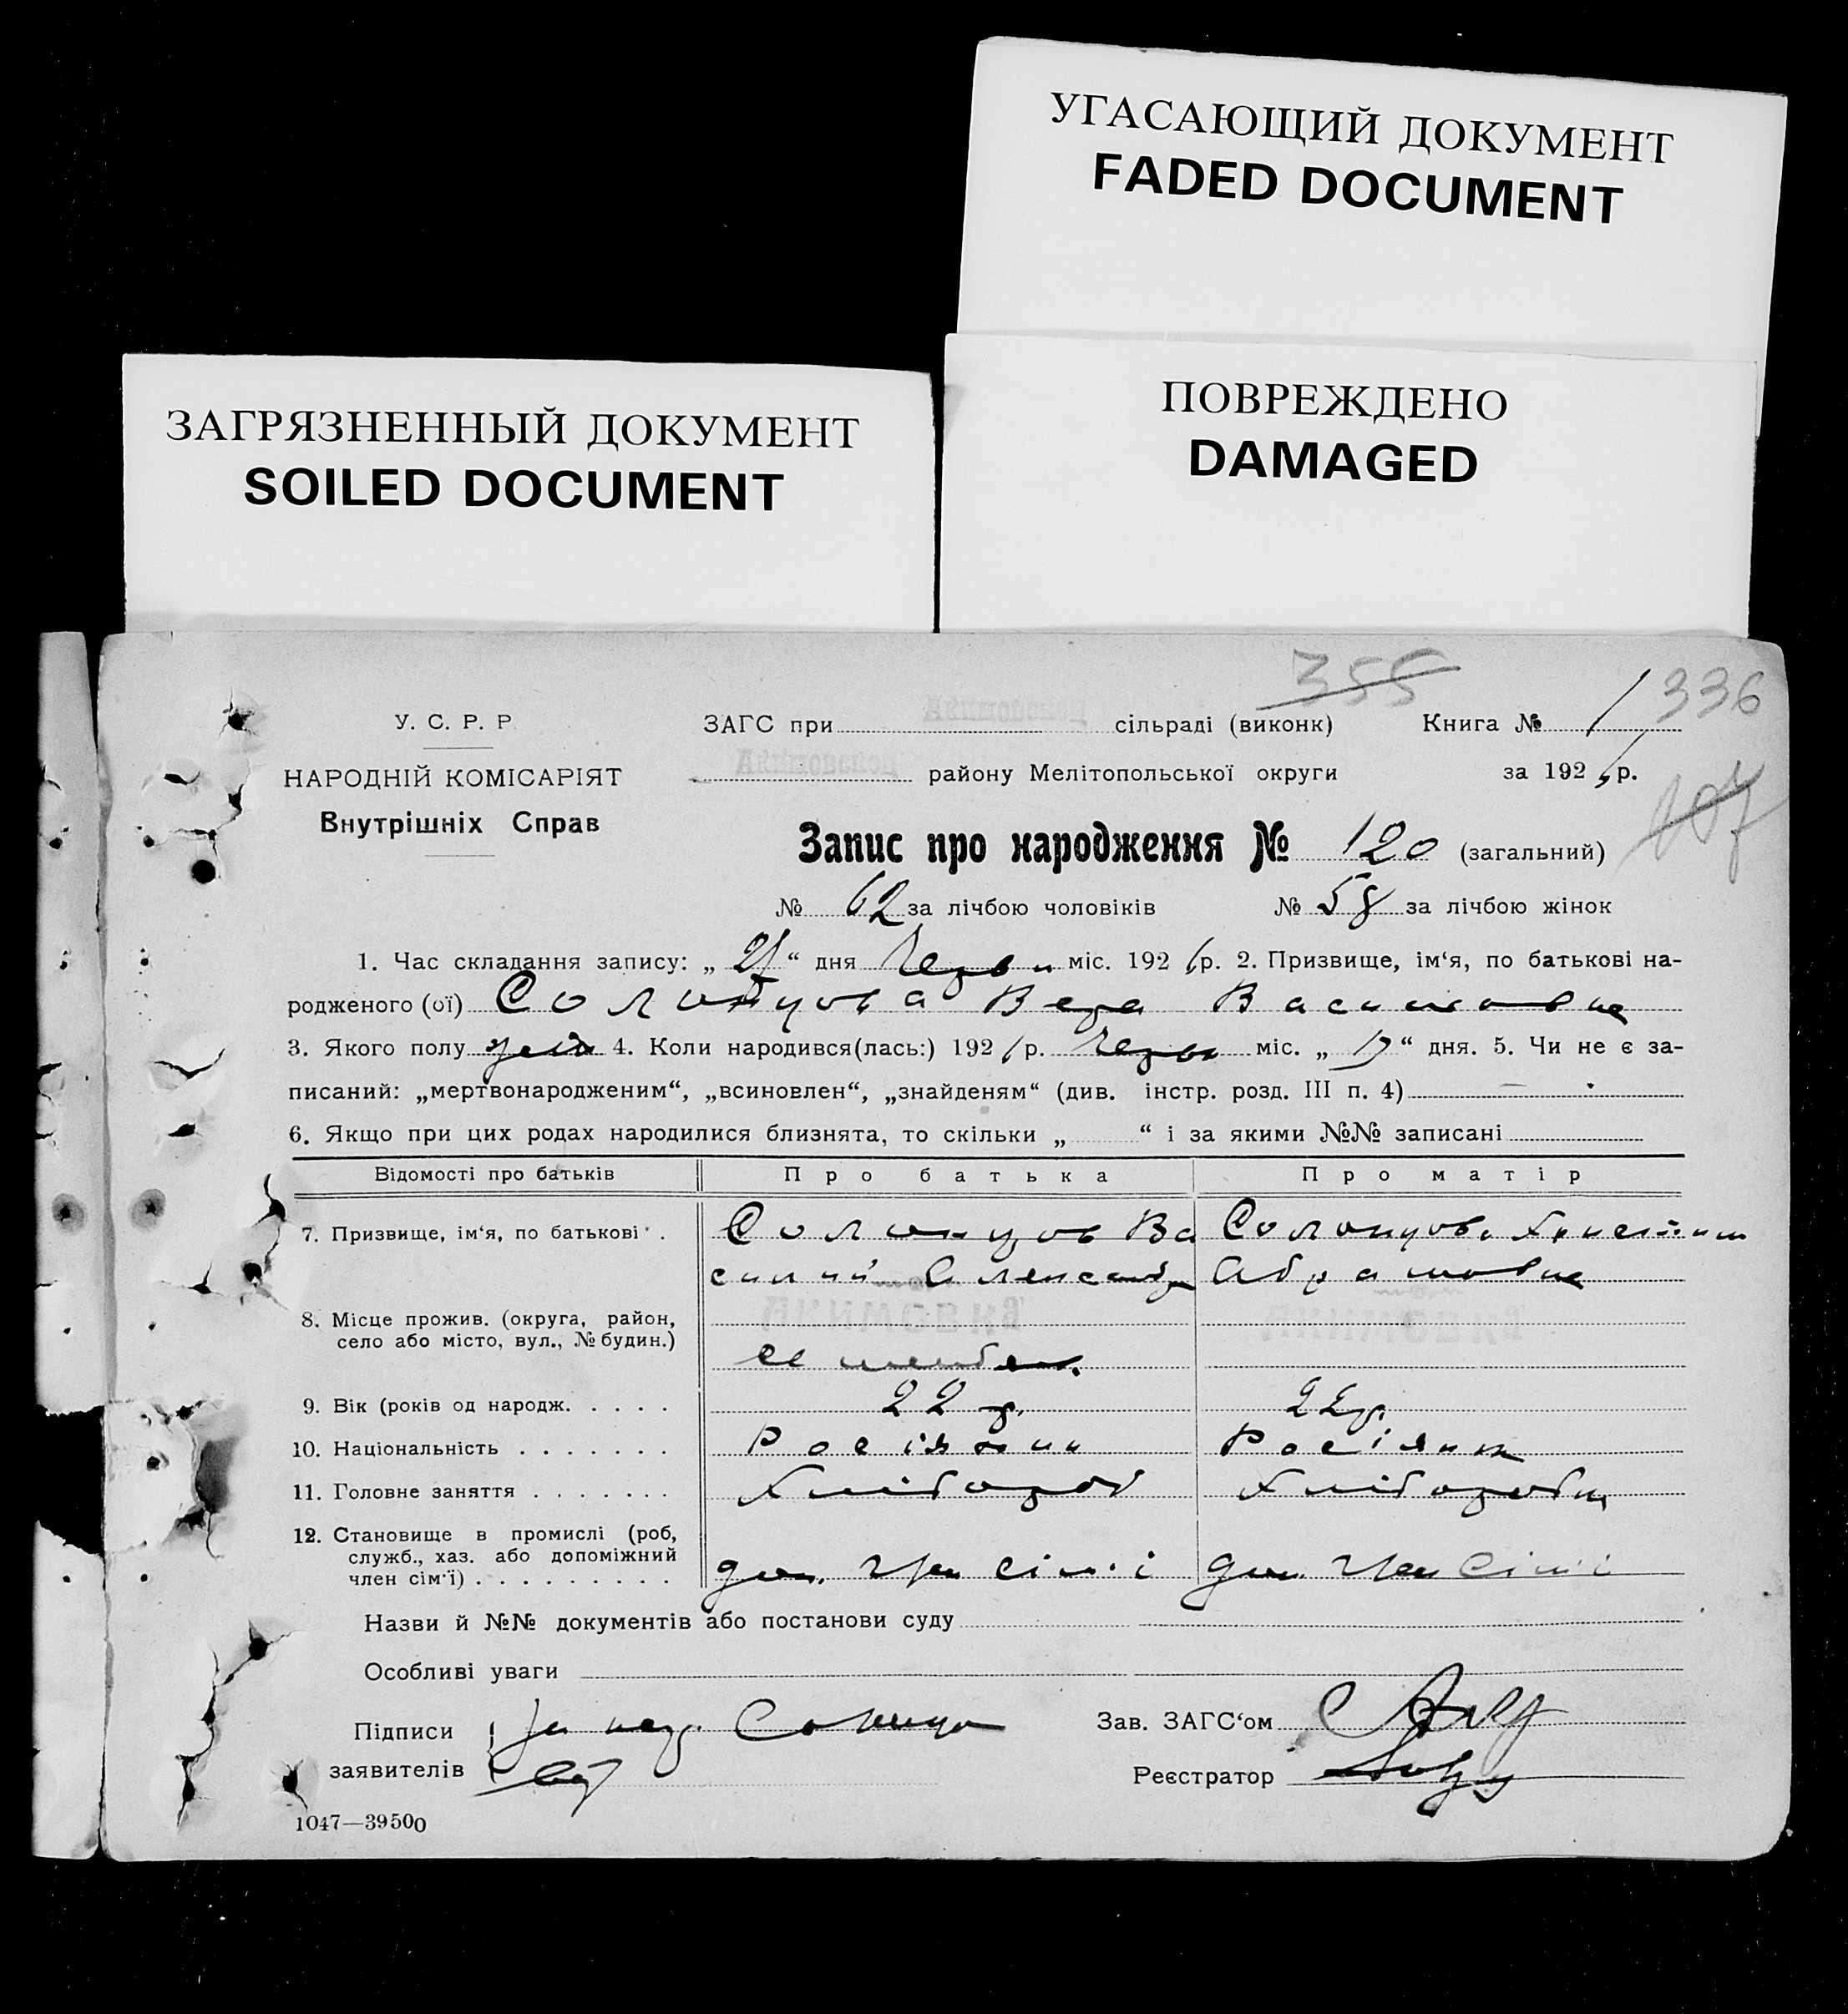 УГАСАЮЩИЙ ДОКУМЕНТ
FADED DOCUMENT
ЗАГРЯЗНЕННЫЙ ДОКУМЕНТ
SOILED DOCUMENT
ПОВРЕЖДЕНО
DAMAGED
355
336
У. С. Р. Р
ЗАГС при Акимовской сільраді (виконк) Книга № 1
НАРОДНІЙ КОМІСАРІЯТ
Акимовской району Мелітопольської округи за 192 р.
Внутрішніх Справ
107
Запис про народження № 120 (загальний)
№ 62 за лічбою чоловіків № 58 за лічбою жінок
1. Час складання запису: „ 21 “ дня Червн міс. 192 р. 2. Призвище, ім‘я, по батькові на-
родженого (ої) Солонцова Вера Василовна
3. Якого полу 4. Коли народився(лась:) 192 р. Червн міс. „ 17 “ дня. 5. Чи не є за-
писаний: „мертвонародженим“, „всиновлен“, „знайденям“ (див. інстр. розд. III п. 4) —
6. Якщо при цих родах народилися близнята, то скільки „ “ і за якими №№ записані
Відомості про батьків Про батька Про матір
7. Призвище, ім‘я, по батькові . Солонцов Ва Солонцова Христин
силий Александр Абрамовна
8. Місце прожив. (округа, район,
село або місто, вул., № будин.)
9. Вік (років од народж. . . . . 22 р. 22 р.
10. Національність . . . . . . . Росіянин Росіянк
11. Головне заняття . . . . . . . Хлібороб Хлібаробка
12. Становище в промислі (роб,
служб., хаз. або допоміжний
член сім‘ї) . . . . . . . . . доп. член сім'і доп. член сім'і
Назви й №№ документів або постанови суду
Особливі уваги
Підписи Зав. ЗАГС‘ом
заявителів Реєстратор
1047—39500